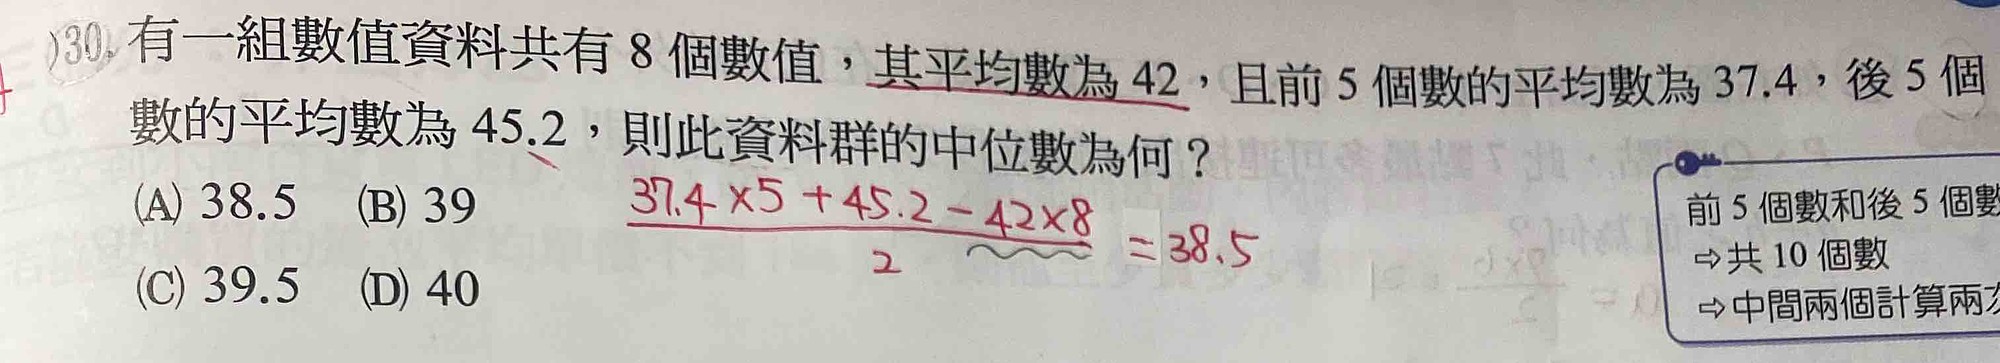 )30. 有一組數值資料共有 8 個數值，其平均數為 42，且前 5 個數的平均數為 37.4，後 5 個
數的平均數為 45.2，則此資料群的中位數為何？
(A) 38.5 (B) 39
(C) 39.5 (D) 40
37.4×5+45.2-42×8
2
=38.5
前 5 個數和後 5 個數
⇨共 10 個數
⇨中間兩個計算兩次